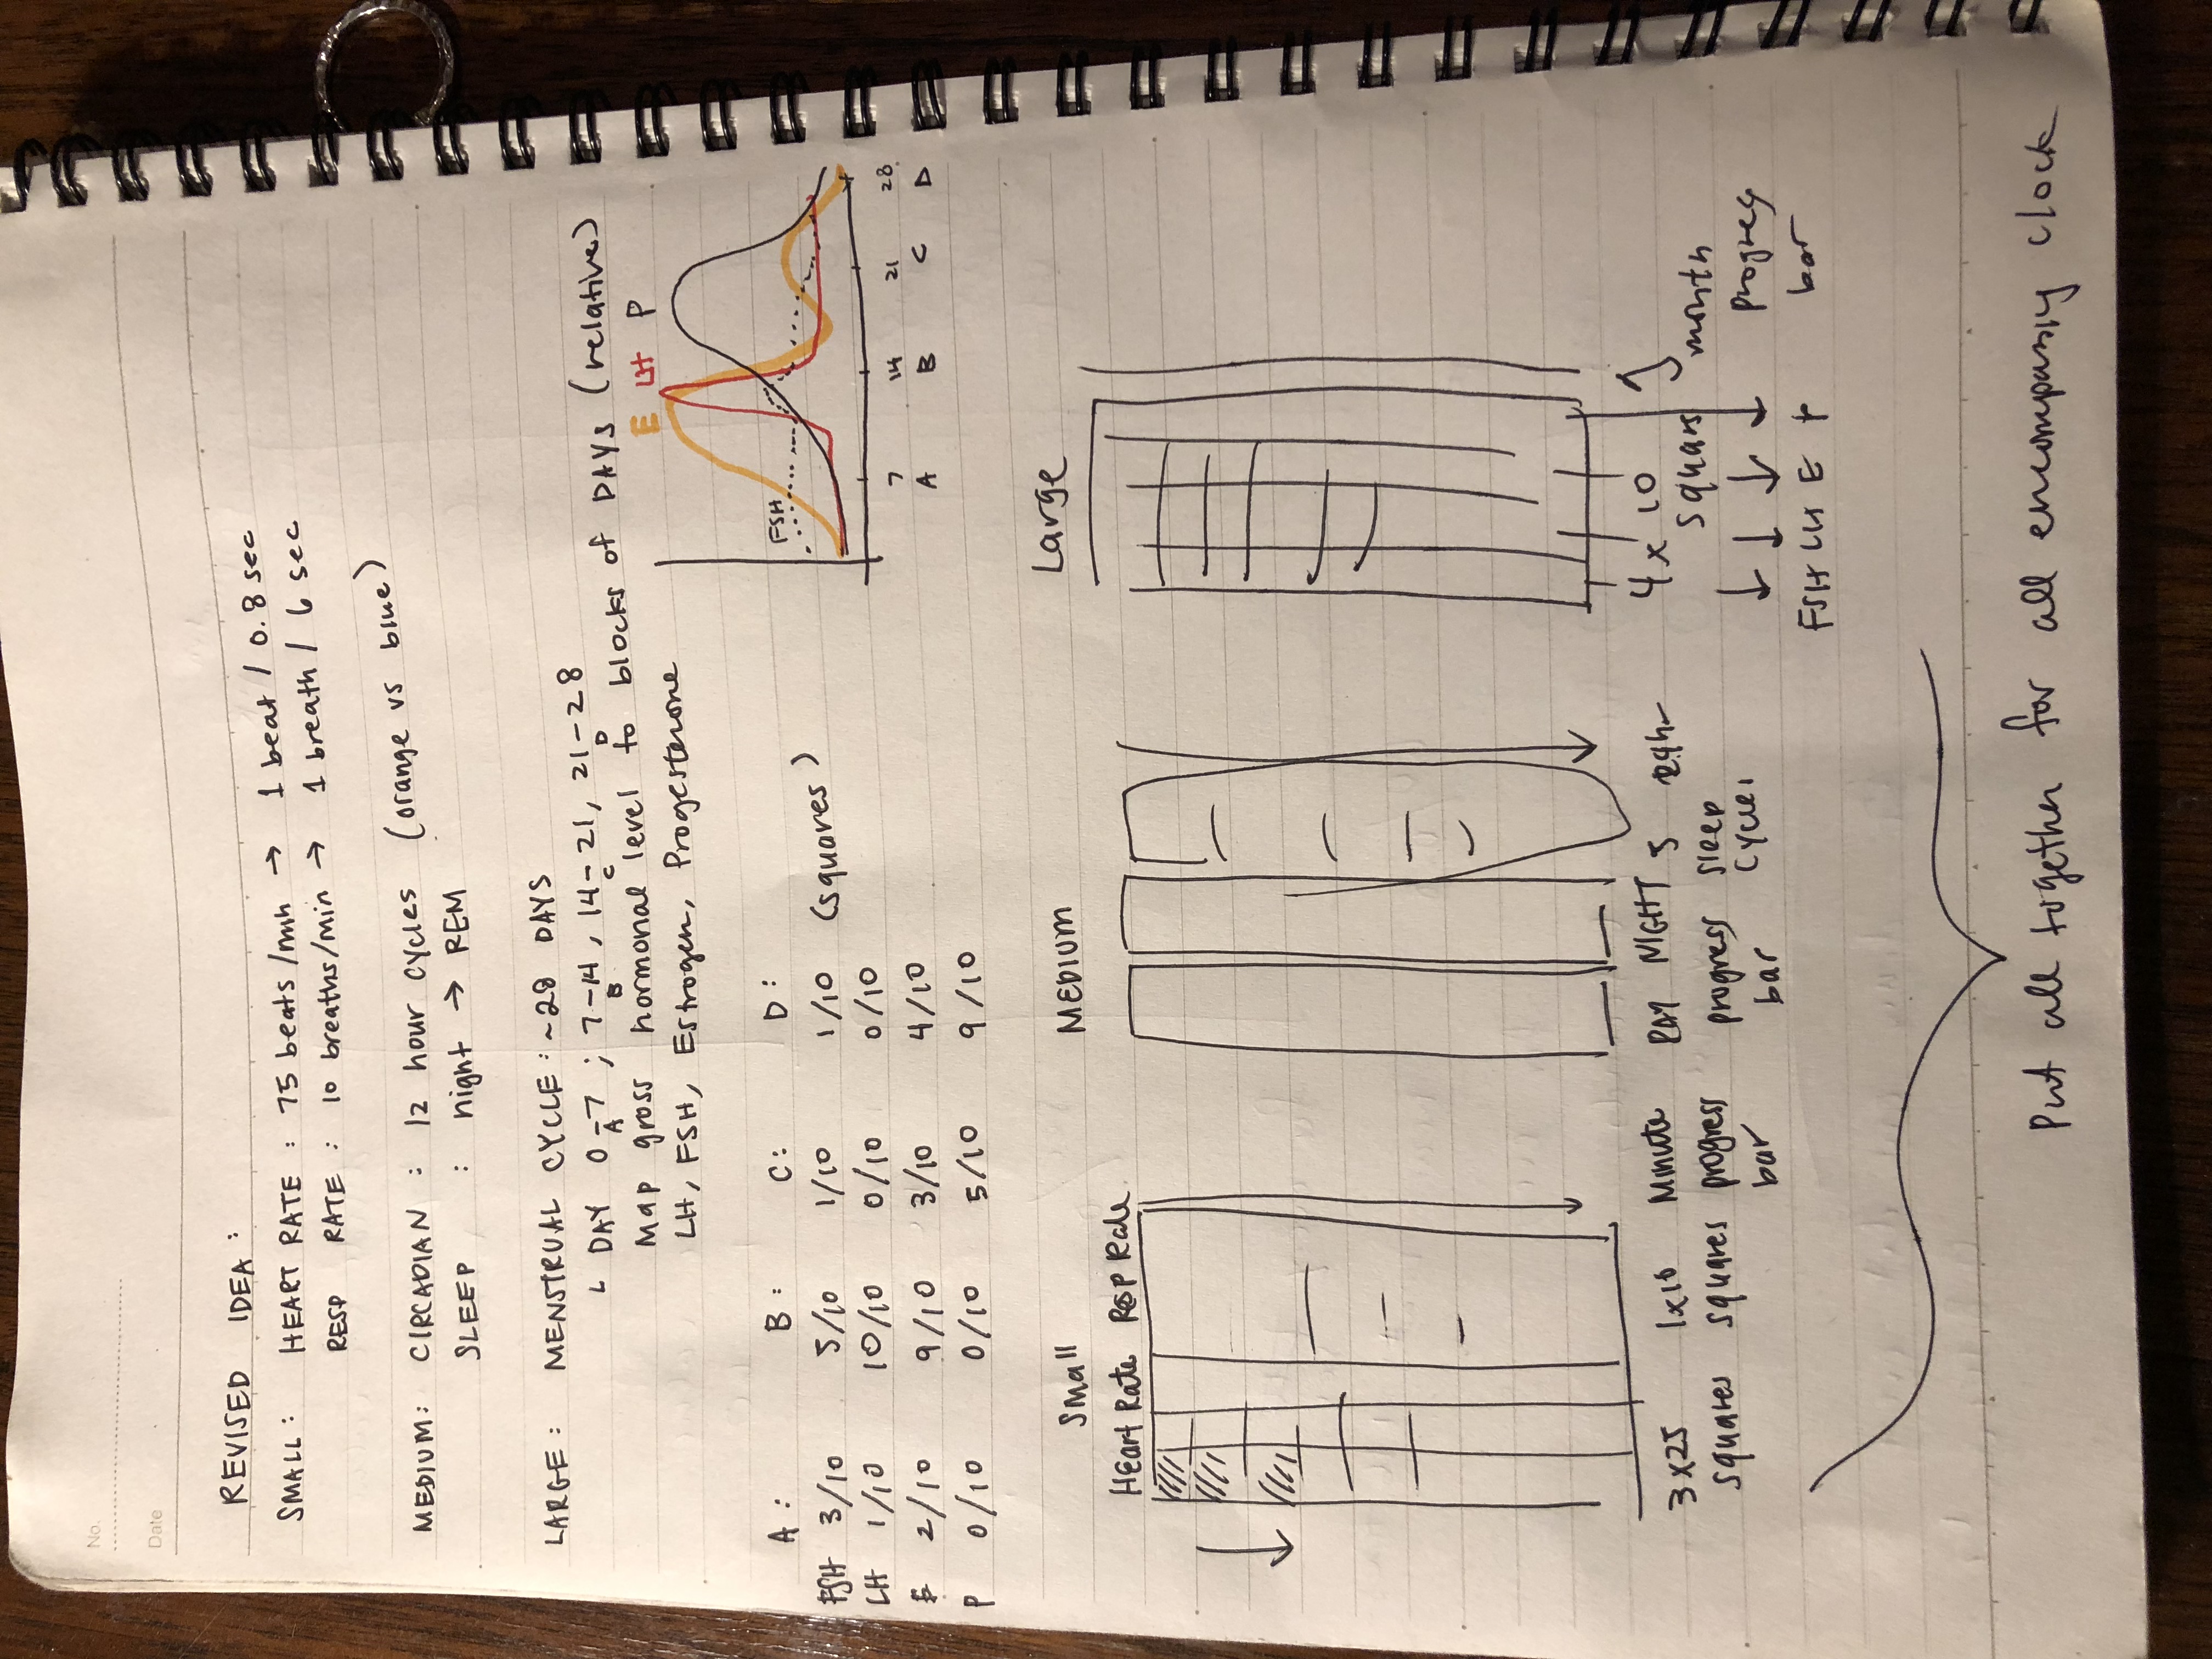 No.
Date
REVISED IDEA :
SMALL : HEART RATE : 75 beats/min → 1 beat / 0.8 sec
RESP RATE : 10 breaths/min → 1 breath / 6 sec
MEDIUM: CIRCADIAN : 12 hour cycles (orange vs blue)
SLEEP : night → REM
LARGE : MENSTRUAL CYCLE : ~28 DAYS
↳ DAY 0-7 ; 7-14 , 14-21, 21-28
A B C D
Map gross hormonal level to blocks of DAYS (relative)
LH, FSH, Estrogen, Progesterone
E LH P
FSH
7 14 21 28
A B C D
A : B : C: D :
FSH 3/10 5/10 1/10 1/10 (squares)
LH 1/10 10/10 0/10 0/10
E 2/10 9/10 3/10 4/10
P 0/10 0/10 5/10 9/10
Small MEDIUM Large
Heart Rate Resp Rate
3x25 squares
1x10 squares
Minute progress bar
DAY NIGHT
progress bar
5 sleep cycles
24hr
4x10 squares
month progress bar
FSH LH E P
Put all together for all encompassing clock